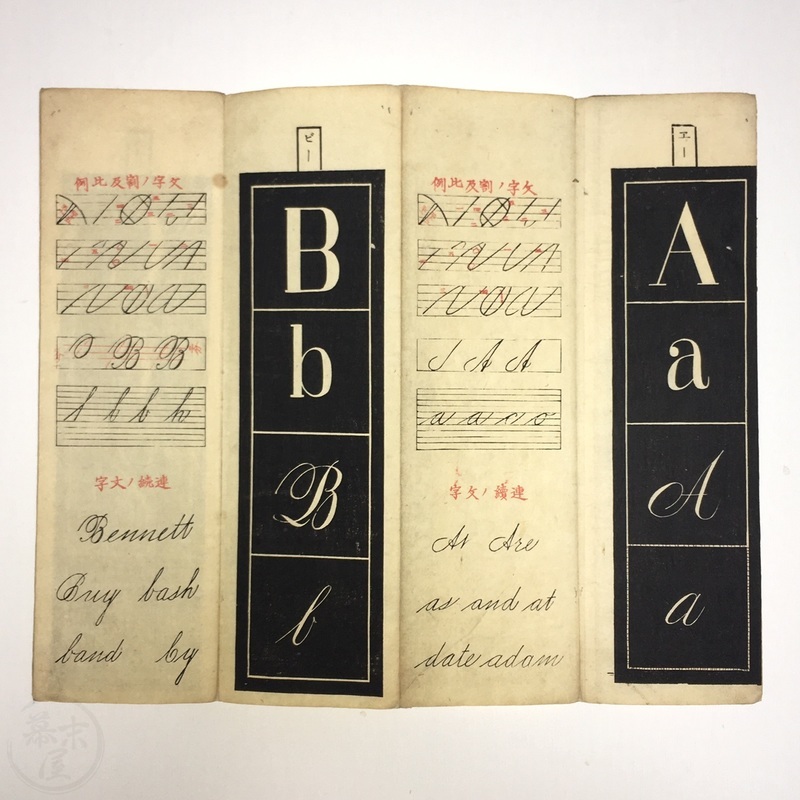 エー
A
a
A
a
文字ノ割及比例
A A
a a c o
連續ノ文字
As Are
as and at
date adam
ビー
B
b
B
b
文字ノ割及比例
O B B
l b b h
連続ノ文字
Bennett
Buy bash
band by
幕末屋